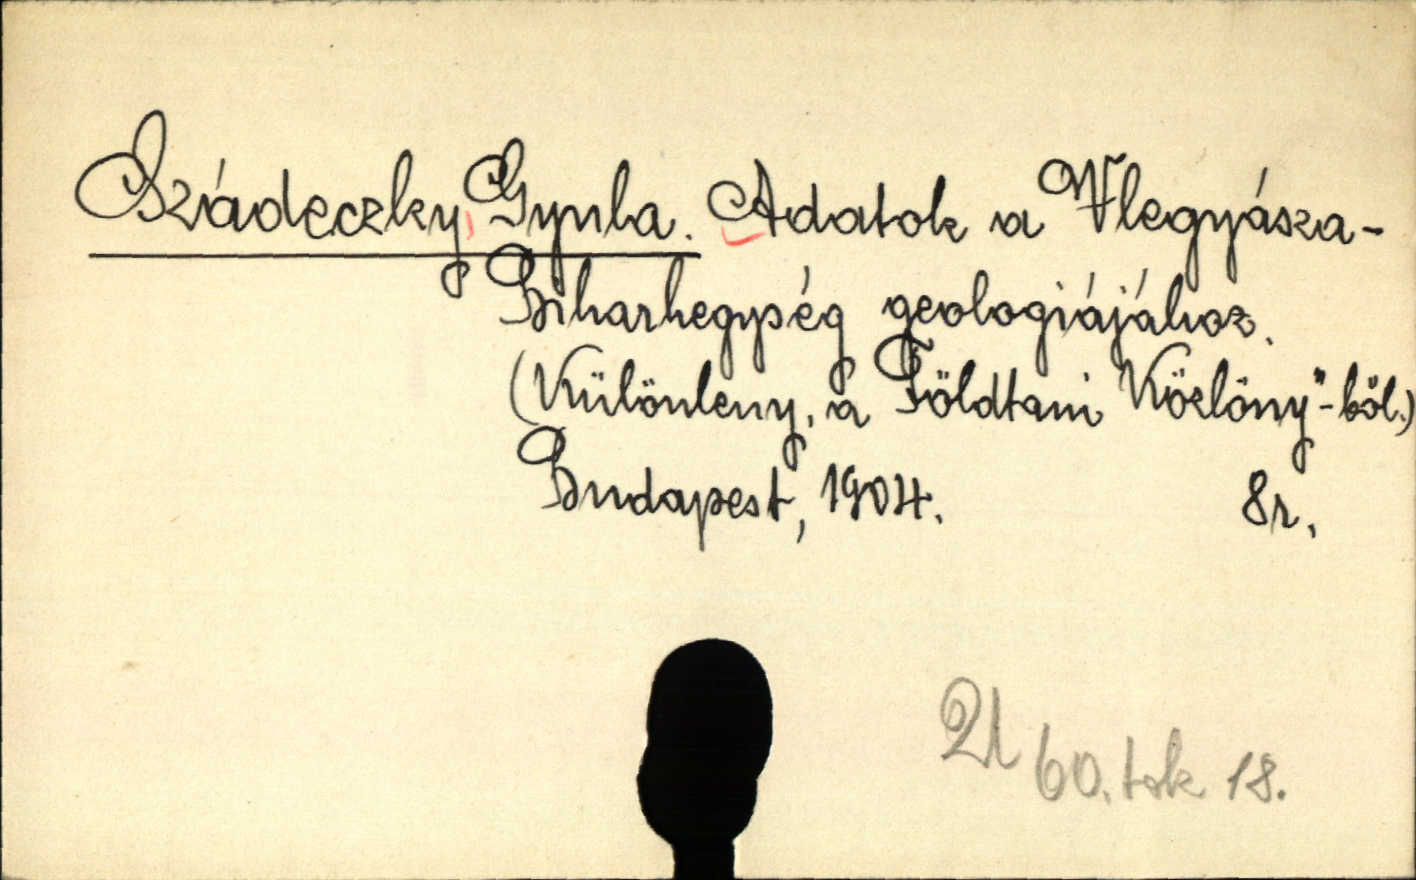 Szádeczky, Gyula. Adatok a Vlegyásza-
Biharhegység geologiájához.
(Különleny. a Földtani Közlöny"-ből.)
Budapest, 1904. 8r.
60. tok 18.